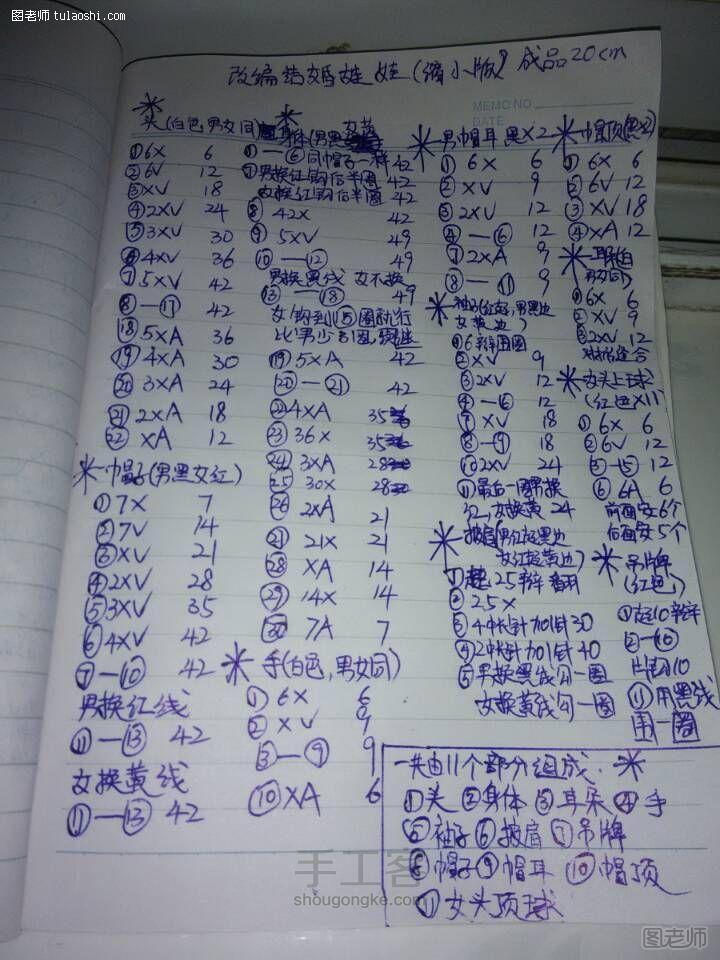 图老师 tulaoshi.com
改编结婚娃娃(缩小版) 成品20cm
MEMO NO.
DATE
头(白色,男女同)
①6X 6
②6V 12
③XV 18
④2XV 24
⑤3XV 30
⑥4XV 36
⑦5XV 42
⑧—⑰ 42
⑱5XA 36
⑲4XA 30
⑳3XA 24
㉑2XA 18
㉒XA 12
帽子(男黑女红)
①7X 7
②7V 14
③XV 21
④2XV 28
⑤3XV 35
⑥4XV 42
⑦—⑩ 42
男换红线
⑪—⑬ 42
女换黄线
⑪—⑬ 42
身体(男黑
①—⑥同帽子一样 42
⑦男换红钩后半圈 42
女换红钩后半圈 42
⑧ 42X 42
⑨ 5XV 49
⑩—⑫ 49
男换黑线 女不换
⑬—⑱ 49
女钩到⑮圈就行
⑲5XA 42
⑳—㉑ 42
㉒4XA 35
㉓36X 35
㉔3XA 28
㉕30X 28
㉖2XA 21
㉗21X 21
㉘XA 14
㉙14X 14
㉚7A 7
手(白色,男女同)
①6X 6
②XV 9
③—⑨ 9
⑩XA 6
男帽耳黑X2
①6X 6
②XV 9
③2XV 12
④—⑥ 12
⑦2XA 9
⑧—⑪ 9
袖子(红起,男黑边
女黄边)
①6辫围圈
②XV 9
③2XV 12
④—⑥ 12
⑦XV 18
⑧—⑨ 18
⑩2XV 24
⑪最后一圈男换
女换黄 24
披肩(男红起黑边
女红起黄边)
①起25辫翻
②25X
③4中长针加1针30
④2中长针加1针40
⑤男换黑线勾一圈
女换黄线勾一圈
帽顶(黑
①6X 6
②6V 12
③XV 18
④XA 12
耳朵白
男女同
①6X 6
②XV 9
③2XV 12
对折缝合
女头上球
(红色X11
①6X 6
②6V 12
③—⑤ 12
⑥6A 6
前面安6个
后面安5个
吊牌
(红色)
①起10辫
②—⑩
片勾10
⑪用黑线
围一圈
一共由11个部分组成.
①头 ②身体 ③耳朵 ④手
⑤袖子 ⑥披肩 ⑦吊牌
⑧帽子 ⑨帽耳 ⑩帽顶
⑪女头顶球
手工客
shougongke.com
图老师